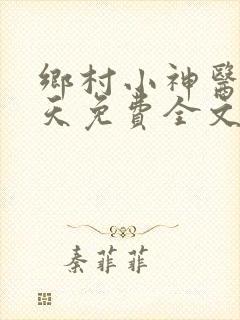 鄉村小神醫
天免費全文
秦菲菲